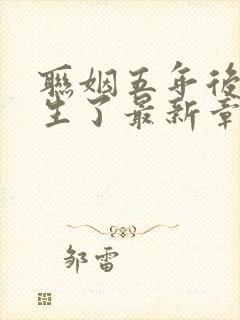 聯姻五年後
生了最新章
邹雷